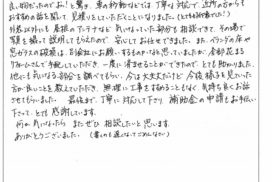 良い切れだったのでお！と驚き、車の移動などでは丁寧に対応して近所の方からも
おすすめの話を聞いて見積りをしていただくことになりました。(とても好印象でした！)
外装以外にも屋根のアンテナなど気になっていた部分も相談できて、その場で
写真を撮って説明してもらえたので、安心してお任せできました。また、ベランダの床や
窓ガラスの破損は、別会社にお願いするものかなと思っていましたが、全部花まる
リフォームさんで手配していただき、一度に済ませることができたので、とても助かりました。
他にも気になる部分を調べてもらい、今は大丈夫だけど今後様子を見ていった
方が良いことを教えていただき、無理に工事をすすめることもなく気持ち良くお話
させてもらいました。最後まで、丁寧に対応して下さり補助金の申請もお手伝い
下さって、とても感謝しています。
何か気になったらまたぜひ相談したいと思います。
ありがとうございました。(書くのも遅くなってごめんなさい)